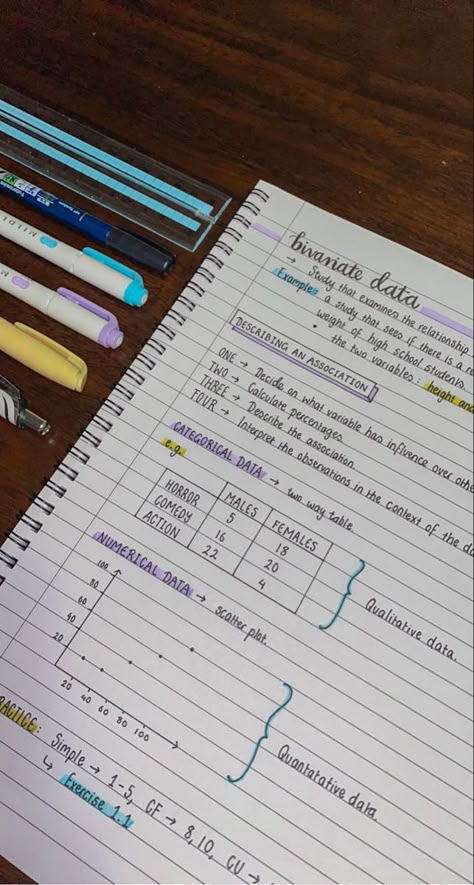 bivariate data
→ Study that examines the relationship
Example: a study that sees if there is a re
weight of high school students.
• the two variables: height an
DESCRIBING AN ASSOCIATION
ONE → Decide on what variable has influence over othe
TWO → Calculate percentages.
THREE → Describe the association.
FOUR → Interpret the observations in the context of the da
CATEGORICAL DATA → two way table.
e.g.
MALES FEMALES
HORROR 5 18
COMEDY 16 20
ACTION 22 4
Qualitative data.
NUMERICAL DATA → scatter plot.
100
80
60
40
20
20 40 60 80 100
Quantatative data.
RACTICE: Simple → 1-5, CF → 8, 10, CU →
↳ Exercise 1.1
MILDL
M